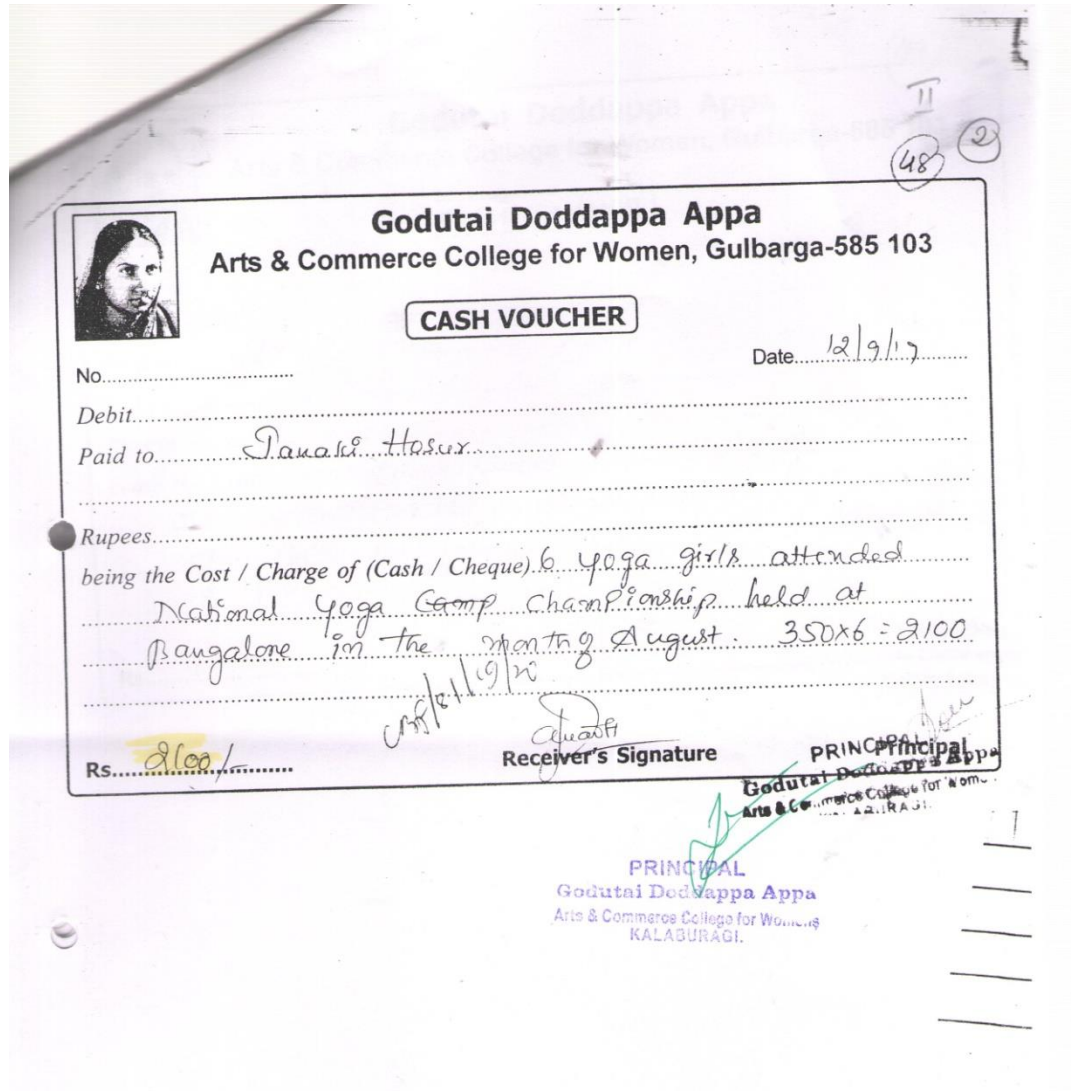 II
2
48
Godutai Doddappa Appa
Arts & Commerce College for Women, Gulbarga-585 103
CASH VOUCHER
No.
Date 12/9/19
Debit
Paid to Janaki Hosur
Rupees
being the Cost / Charge of (Cash / Cheque) 6 yoga girls attended
National Yoga Camp Championship held at
Bangalore in the month of August. 350x6 = 2100
Rs. 2100/-
Receiver's Signature
PRINCIPAL
Principal
Godutai Doddappa Appa
Arts & Commerce College for Wom
PRINCIPAL
Godutai Doddappa Appa
Arts & Commerce College for Womens
KALABURAGI.